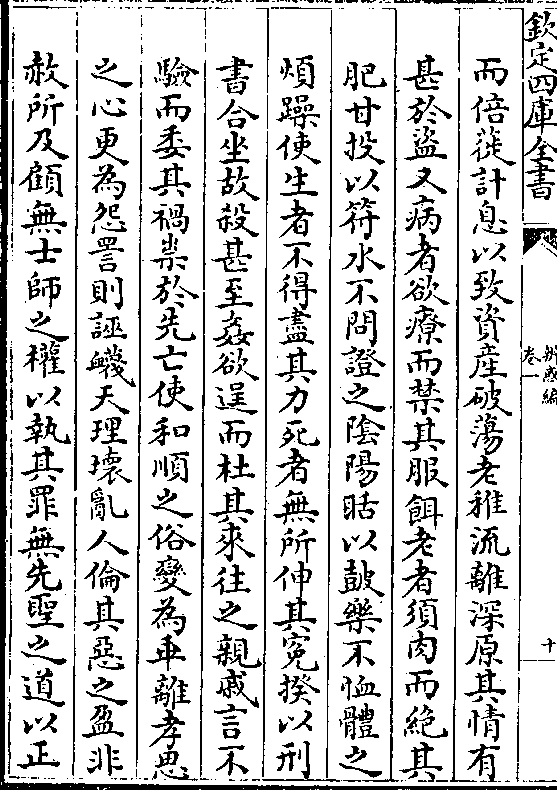 欽定四庫全書
辨惑編
卷一
十
而倍蓰計息以致資産破蕩老稚流離深原其情有
甚於盜又病者欲療而禁其服餌老者須肉而絶其
肥甘投以符水不問證之陰陽聒以鼓樂不恤體之
煩躁使生者不得盡其力死者無所伸其寃揆以刑
書合坐故殺甚至姦欲逞而杜其來往之親戚言不
驗而委其禍祟於先亡使和順之俗變為乖離孝思
之心更為怨詈則誣衊天理壞亂人倫其惡之盈非
赦所及顧無士師之權以執其罪無先聖之道以正